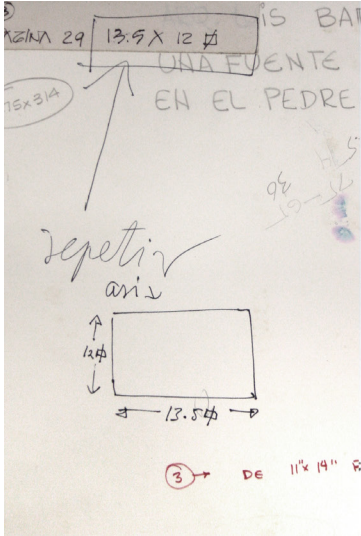 3
PÁGINA 29 13.5 X 12 ⌀
IS BAR
UNA FUENTE
EN EL PEDRE
75x314
repetir
asi
12⌀
13.5⌀
3 → DE 11"x 14"